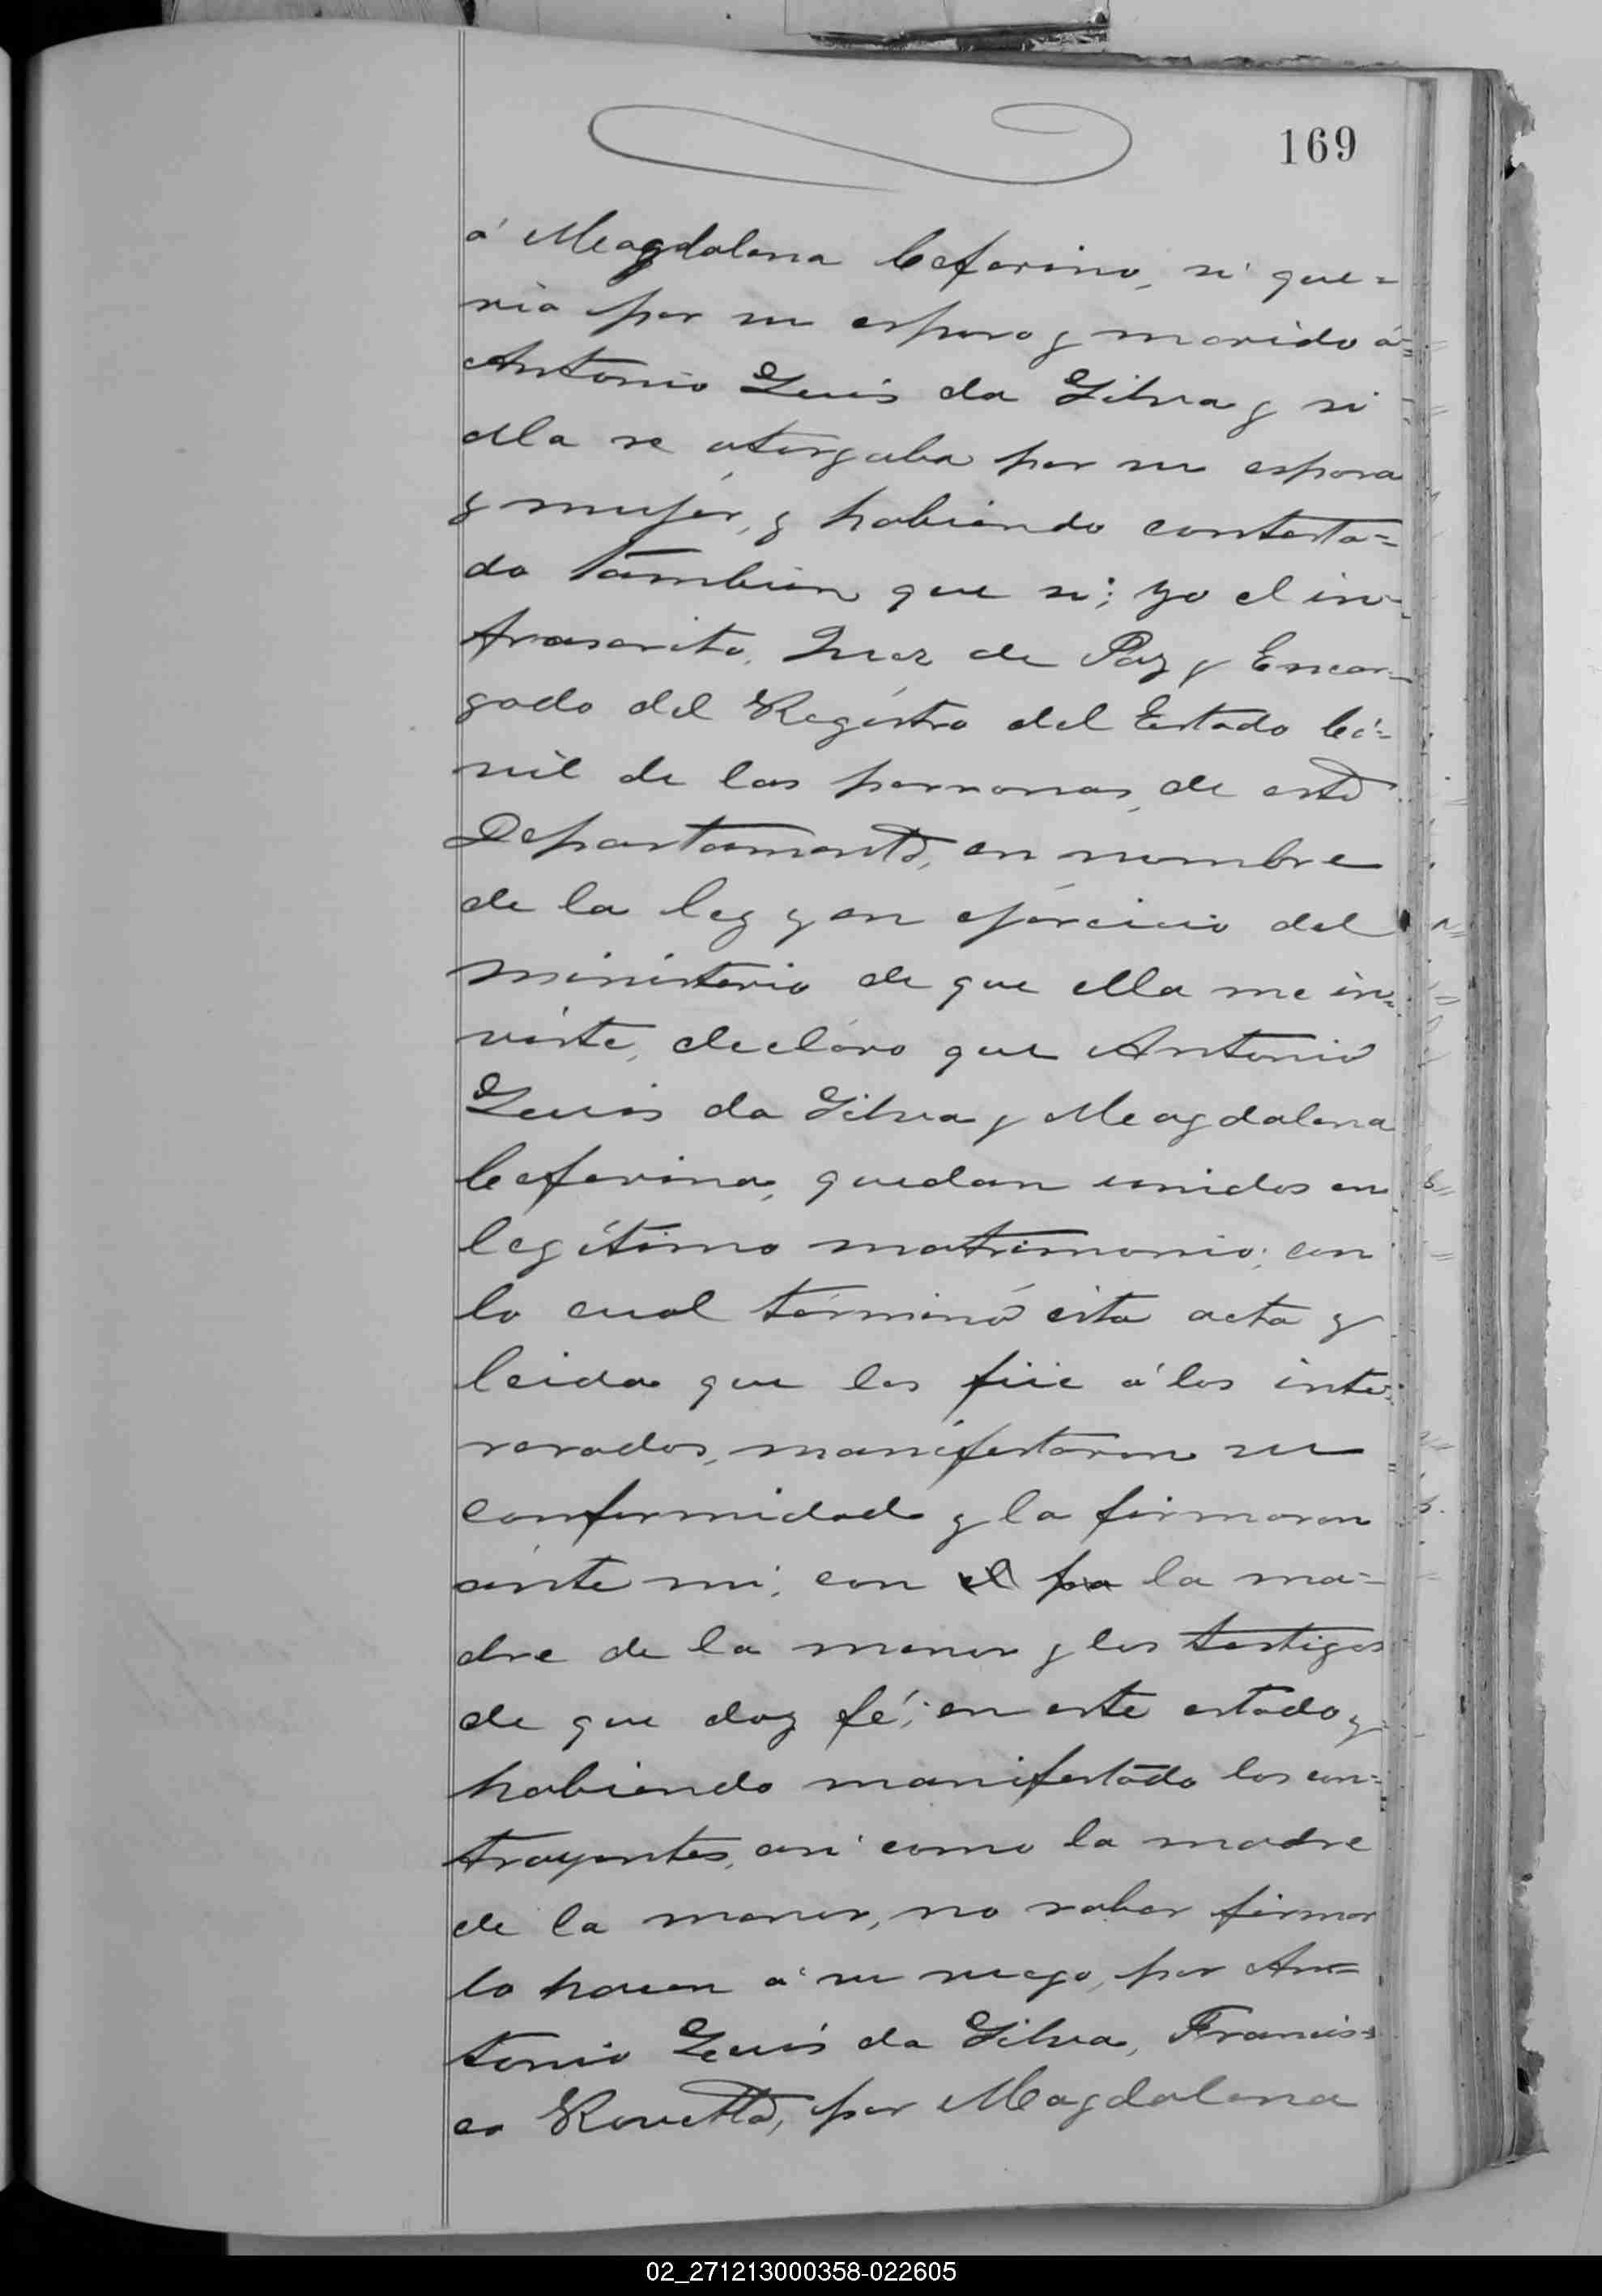 169
á Magdalena Ceferino, si que=
ria por su esposo y marido á=
Antonio Luis da Silva y si
ella se otorgaba por su esposa
y mujer, y habiendo contesta=
do tambien que si; yo el in-
frascrito, Juez de Paz y Encar-
gado del Registro del Estado Ci=
vil de las personas, de este
Departamento, en nombre
de la ley y en ejercicio del
ministerio de que ella me in=
viste, declaro que Antonio
Luis da Silva y Magdalena
Ceferina, quedan unidos en
legítimo matrimonio; con
lo cual terminó esta acta y
leida que les fué á los inte=
resados, manifestaron su
conformidad y la firmaron
ante mi, con el pa la ma=
dre de la menor y los testigos
de que doy fé; en este estado y
habiendo manifestado los con=
trayentes, asi como la madre
de la menor, no saber firmar
lo hacen á su ruego, por An=
tonio Luis da Silva, Francis=
co Rovetta, por Magdalena
02_271213000358-022605